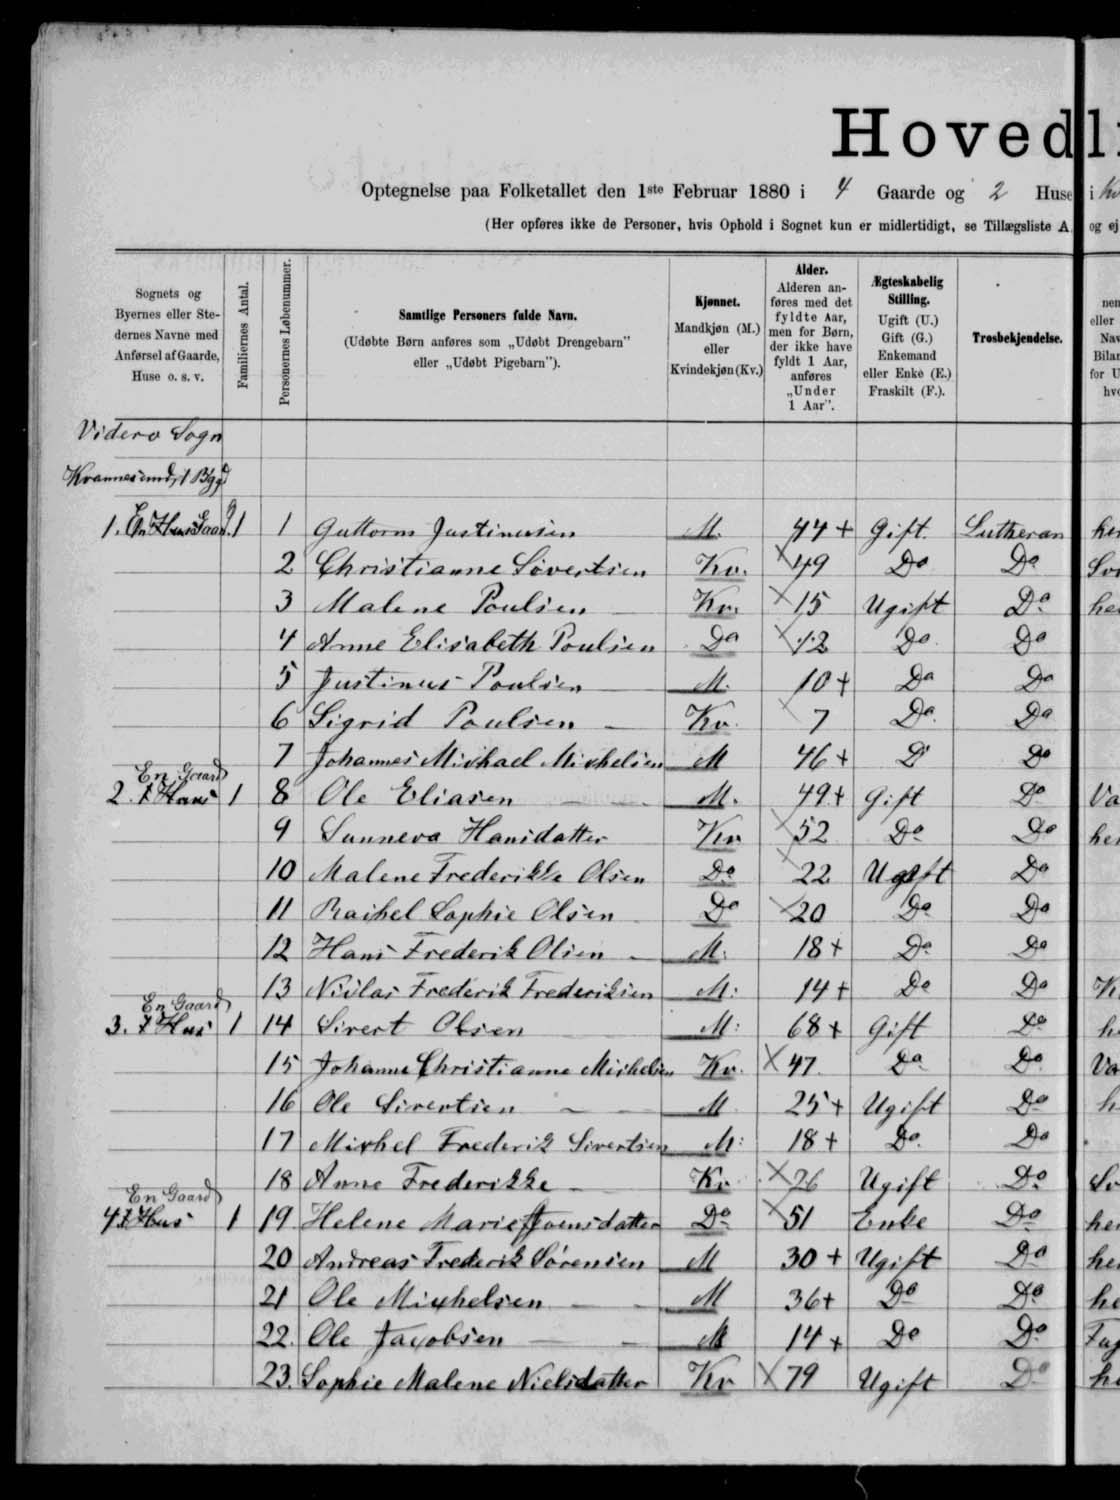 Hovedl
Optegnelse paa Folketallet den 1ste Februar 1880 i 4 Gaarde og 2 Huse i
(Her opføres ikke de Personer, hvis Ophold i Sognet kun er midlertidigt, se Tillægsliste A. og ej
Sognets og Byernes eller Stedernes Navne med Anførsel af Gaarde, Huse o. s. v.
Familiernes Antal.
Personernes Løbenummer.
Samtlige Personers fulde Navn.
(Udøbte Børn anføres som „Udøbt Drengebarn"
eller „Udøbt Pigebarn").
Kjønnet.
Mandkjøn (M.)
eller
Kvindekjøn (Kv.)
Alder.
Alderen anføres med det fyldte Aar, men for Børn, der ikke have fyldt 1 Aar, anføres „Under 1 Aar".
Ægteskabelig Stilling.
Ugift (U.)
Gift (G.)
Enkemand
eller Enke (E.)
Fraskilt (F.).
Trosbekjendelse.
Viderø Sogn
Kvannesund, Bygd
1. En Gaard 1 1 Guttorm Justinusen M. 44 + Gift. Lutheran
2 Christianne Sivertsen Kv. × 49 Do Do
3 Malene Poulsen Kv. × 15 Ugift Do
4 Anne Elisabeth Poulsen Do × 12 Do Do
5 Justinus Poulsen M. 10 + Do Do
6 Sigrid Poulsen Kv. 7 Do Do
7 Johannes Michael Michelsen M 46 + Do Do
En Gaard
2. 1 Huus 1 8 Ole Eliasen M. 49 + Gift Do
9 Sunneva Hansdatter Kv × 52 Do Do
10 Malene Frederikke Olsen Do × 22 Ugift Do
11 Rachel Sophie Olsen Do × 20 Do Do
12 Hans Frederik Olsen M. 18 + Do Do
13 Niclas Frederik Frederiksen M: 14 + Do Do
En Gaard
3. 1 Hus 1 14 Sivert Olsen M: 68 + Gift Do
15 Johanne Christianne Michelsen Kv. × 47 Do Do
16 Ole Sivertsen M 25 + Ugift Do
17 Michel Frederik Sivertsen M: 18 + Do Do
18 Anne Frederikke Kv × 26 Ugift Do
En Gaard
4. 1 Hus 1 19 Helene Marie Joensdatter Do × 51 Enke Do
20 Andreas Frederik Sørensen M 30 + Ugift Do
21 Ole Michelsen M 36 + Do Do
22. Ole Jacobsen M 14 + Do Do
23. Sophie Malene Nielsdatter Kv × 79 Ugift Do